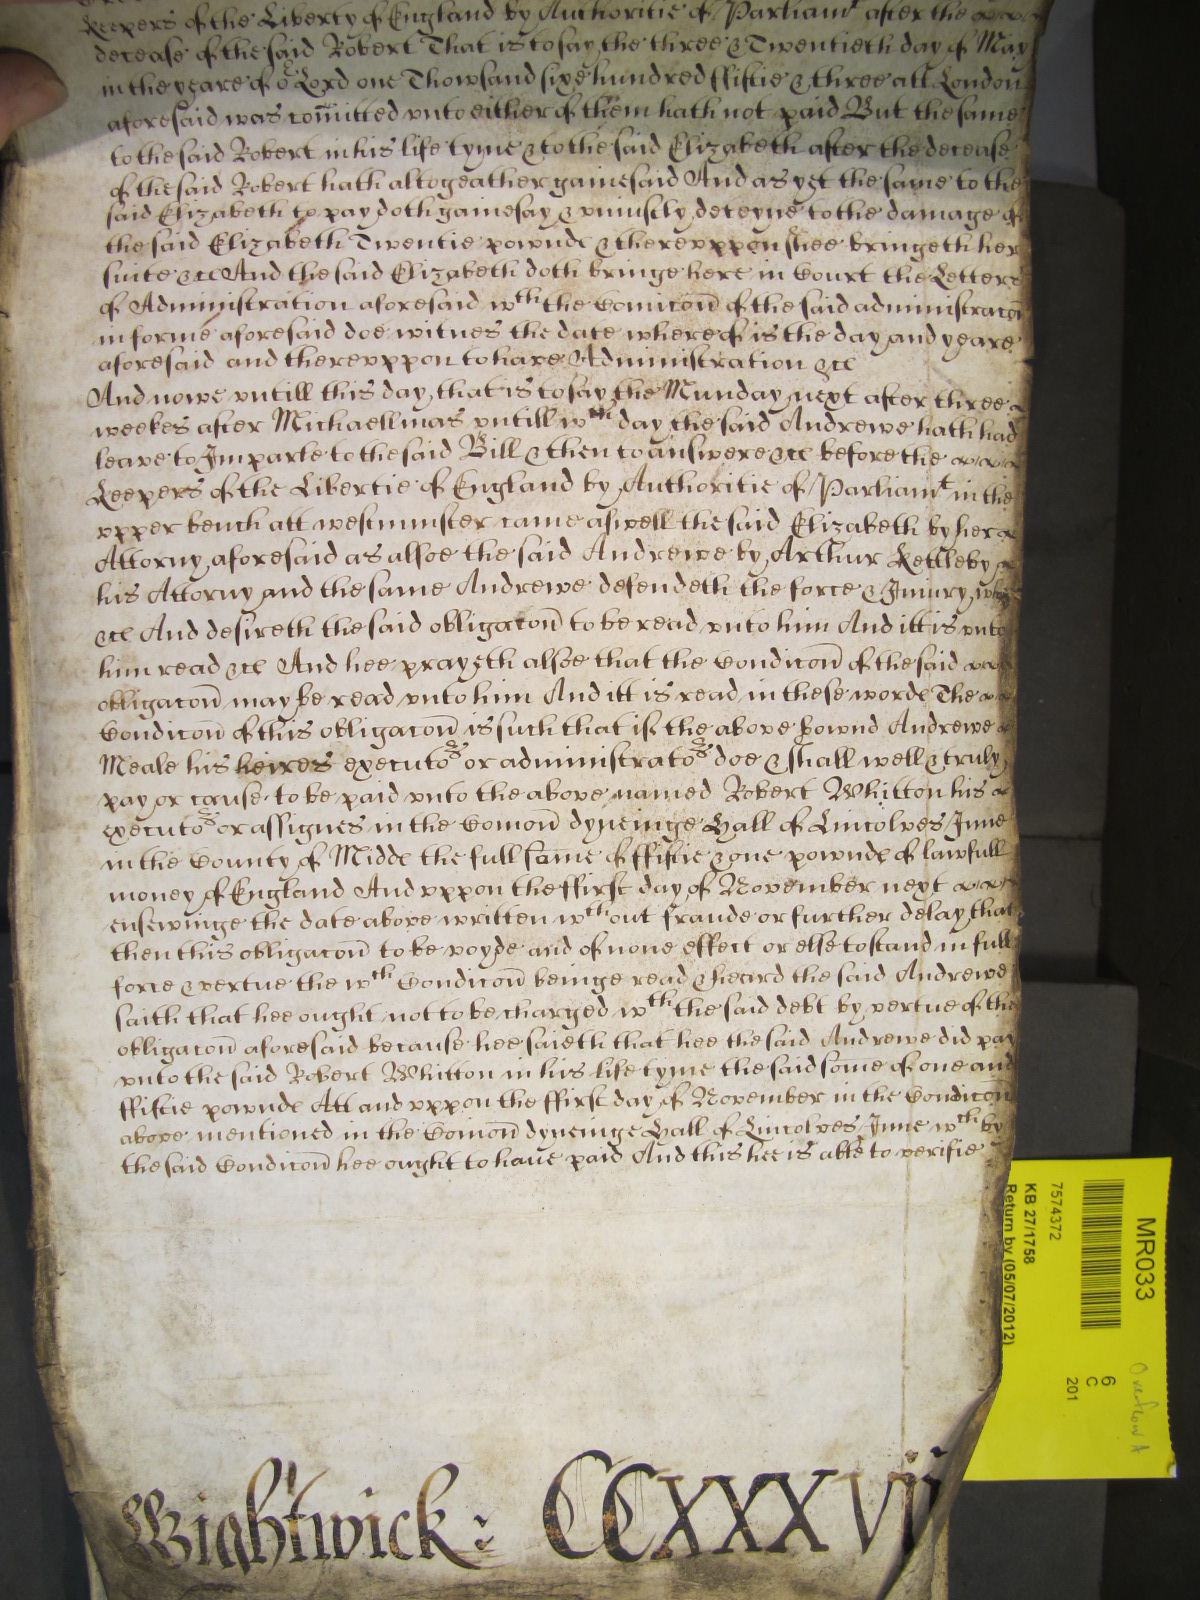 Keepers of the Liberty of England by Authoritie of Parliamt after the
decease of the said Robert That is to say the three & Twentieth day of May
in the yeare of or Lord one Thowsand sixe hundred ffiftie & three att London
aforesaid was comitted unto either of them hath not paid But the same
to the said Robert in his life tyme & to the said Elizabeth after the decease
of the said Robert hath altogeather gainesaid And as yet the same to the
said Elizabeth to pay doth gainesay & uniustly deteyne to the damage of
the said Elizabeth Twentie pownds & thereuppon shee bringeth her
suite &c And the said Elizabeth doth bringe here in Court the Letters
of Administration aforesaid wth the Comicon of the said administracon
in forme aforesaid doe witnes the date whereof is the day and yeare
aforesaid and thereuppon to have Administration &c
And nowe untill this day, that is to say the Munday next after three
weekes after Michaellmas untill wch day the said Andrewe hath had
leave to Imparle to the said Bill & then to answere &c before the
Keepers of the Libertie of England by Authoritie of Parliamt in the
upper bench att westminster came aswell the said Elizabeth by her
Attorny aforesaid as alsoe the said Andrewe by Arthur Kettleby
his Attorny and the same Andrewe defendeth the force & Iniury when
&c And desireth the said obligacon to be read unto him And itt is unto
him read &c And hee prayeth alsoe that the Condicon of the said
obligacon may be read unto him And itt is read in these words The
Condicon of this obligacon is such that if the above bownd Andrewe
Meale his heires executors or administrators doe & shall well & truly
pay or cause to be paid unto the above named Robert Whitton his
executors or assignes in the Comon dyneinge Hall of Lincolnes Inne
in the County of Midds the full some of ffiftie & one pownds of lawfull
money of England And uppon the ffirst day of November next
ensewinge the date above written wthout fraude or further delay that
then this obligacon to be voyde and of none effect or else to stand in full
force & vertue the wch Condicon beinge read & heard the said Andrewe
saith that hee ought not to be charged wth the said debt by vertue of the
obligacon aforesaid because hee saieth that hee the said Andrewe did pay
unto the said Robert Whitton in his life tyme the said some of one and
ffiftie pownds Att and uppon the ffirst day of November in the Condicon
above mentioned in the Comon dyneinge Hall of Lincolnes Inne wch by
the said Condicon hee ought to have paid And this hee is able to verifie
Wightwick: CCXXXVii
MR033
7574372
KB 27/1758
Return by (05/07/2012)
6
C
201
Overflow A